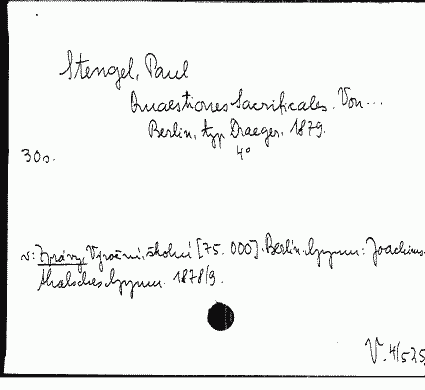 Stengel, Paul
Quaestiones Sacrificales. Von...
Berlin, typ Draeger, 1879.
30s. 4°
v: Zprávy, Výroční, školní [75.000]. Berlin. Gymn: Joachims-
thalsches Gymn. 1878/9.
V. 4/525